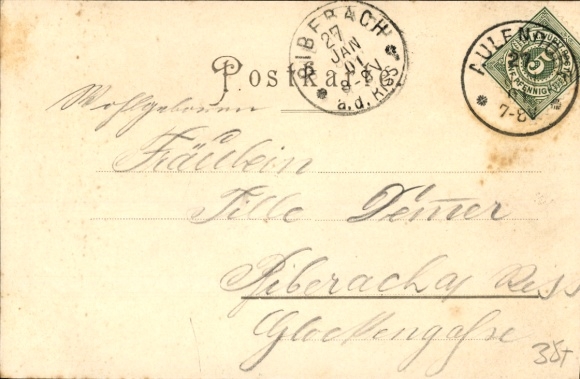 BIBERACH
27
JAN
01
8-9V
a.d. RISS
AULENDORF
27
7-8
5
PFENNIG
Postkarte
Wohlgeboren
Fräulein
Tille Demer
Biberach a/ Riss
Glockengasse